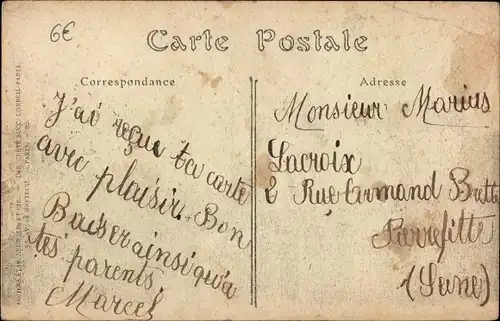 6€
Carte Postale
Correspondance
J'ai reçue ta carte
avec plaisir. Bon
Baiser ainsi qu'a
tes parents,
Marcel
Adresse
Monsieur Marius
Lacroix
Rue Armand
Pierrefitte
(Seine)